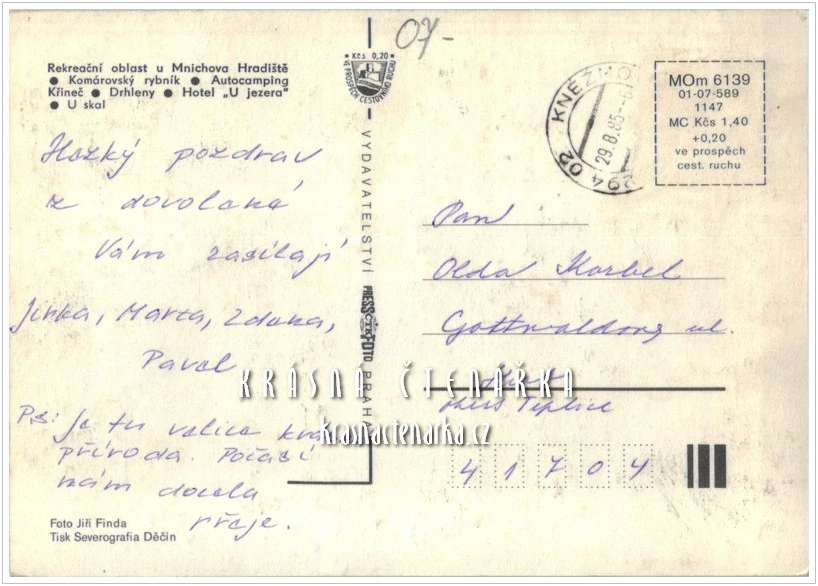 07-
Rekreační oblast u Mnichova Hradiště
● Komárovský rybník ● Autocamping
Křineč ● Drhleny ● Hotel „U jezera"
● U skal
Kčs 0,20
VE PROSPĚCH CESTOVNÍHO RUCHU
294 02 KNĚŽMO
29.8.85
MOm 6139
01-07-589
1147
MC Kčs 1,40
+0,20
ve prospěch
cest. ruchu
Hezký pozdrav
z dovolené
Vám zasílají
Jirka, Marta, Zdena,
Pavel
PS: Je tu velice
příroda. Počasí
nám docela
přeje.
VYDAVATELSTVÍ PRESSFOTO PRAHA
Pan
Olda Korbel
Gottwaldova ul.
okres Teplice
41704
KRÁSNÁ ČTENÁŘKA
krasnactenarka.cz
Foto Jiří Finda
Tisk Severografia Děčín